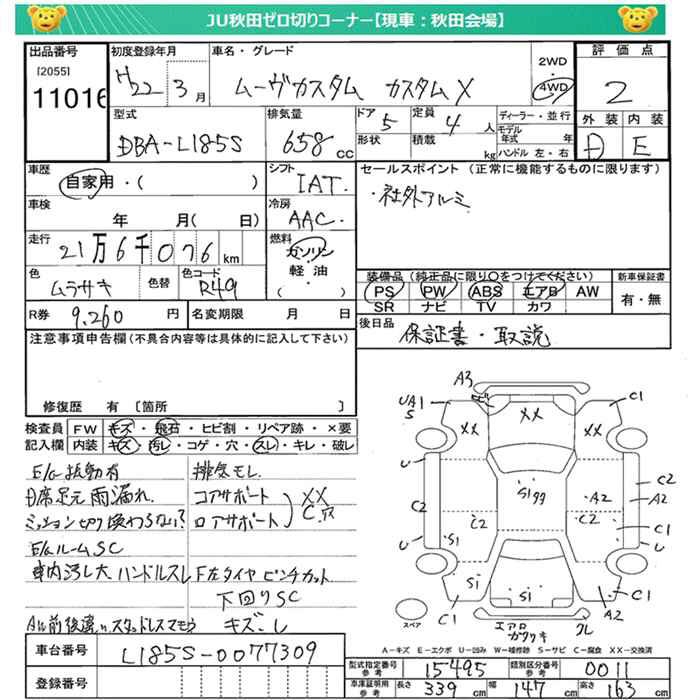 JU秋田ゼロ切りコーナー【現車：秋田会場】
出品番号 初度登録年月 車名・グレード 2WD・4WD 評価点
[2055] 11016 H22 3月 ムーヴカスタム カスタムX 2
型式 排気量 ドア 5 定員 4人 ディーラー・並行 外装 内装
DBA-L185S 658cc 形状 積載 kg モデル年式 年 ハンドル 左・右 D E
車歴 自家用・( ) シフト IAT セールスポイント (正常に機能するものに限ります)
車検 年 月( 日) 冷房 AAC ・社外アルミ
走行 21万6千076km 燃料 ガソリン 軽油 ( ・ )
色 ムラサキ 色替 色コード R49 装備品(純正品に限り○をつけてください) 新車保証書
PS PW ABS エアB AW 有・無
SR ナビ TV カワ
R券 9,260円 名変期限 月 日 後日品 保証書・取説
注意事項申告欄(不具合内容等は具体的に記入して下さい)
修復歴 有 〔箇所 〕
検査員 FW キズ・飛石・ヒビ割・リペア跡・×要
記入欄 内装 キズ・汚レ・コゲ・穴・スレ・キレ・破レ
E/G振動有 排気モレ
D席足元雨漏れ コアサポート XX
ミッション切り換わらない? ロアサポート C.穴
E/GルームSC
車内汚し大 ハンドルスレ F左タイヤピンチカット
下回りSC
AW前後違い スタッドレスマモウ キズこし
A3
UA1 S ヒ XX C1
XX XX
U U
S199 A2 C2
C2 C2 C2 A2
U S1 C1 U
S1 S1 C1
スペア C1 エアロ ガタツキ クレ A2
A－キズ E－エクボ U－凹み W－補修跡 S－サビ C－腐食 XX－交換済
車台番号 L185S-0077309
型式指定番号 参考 15495 類別区分番号 参考 0011
登録番号 車庫証明用 参考 長さ 339cm 幅 147cm 高さ 163cm